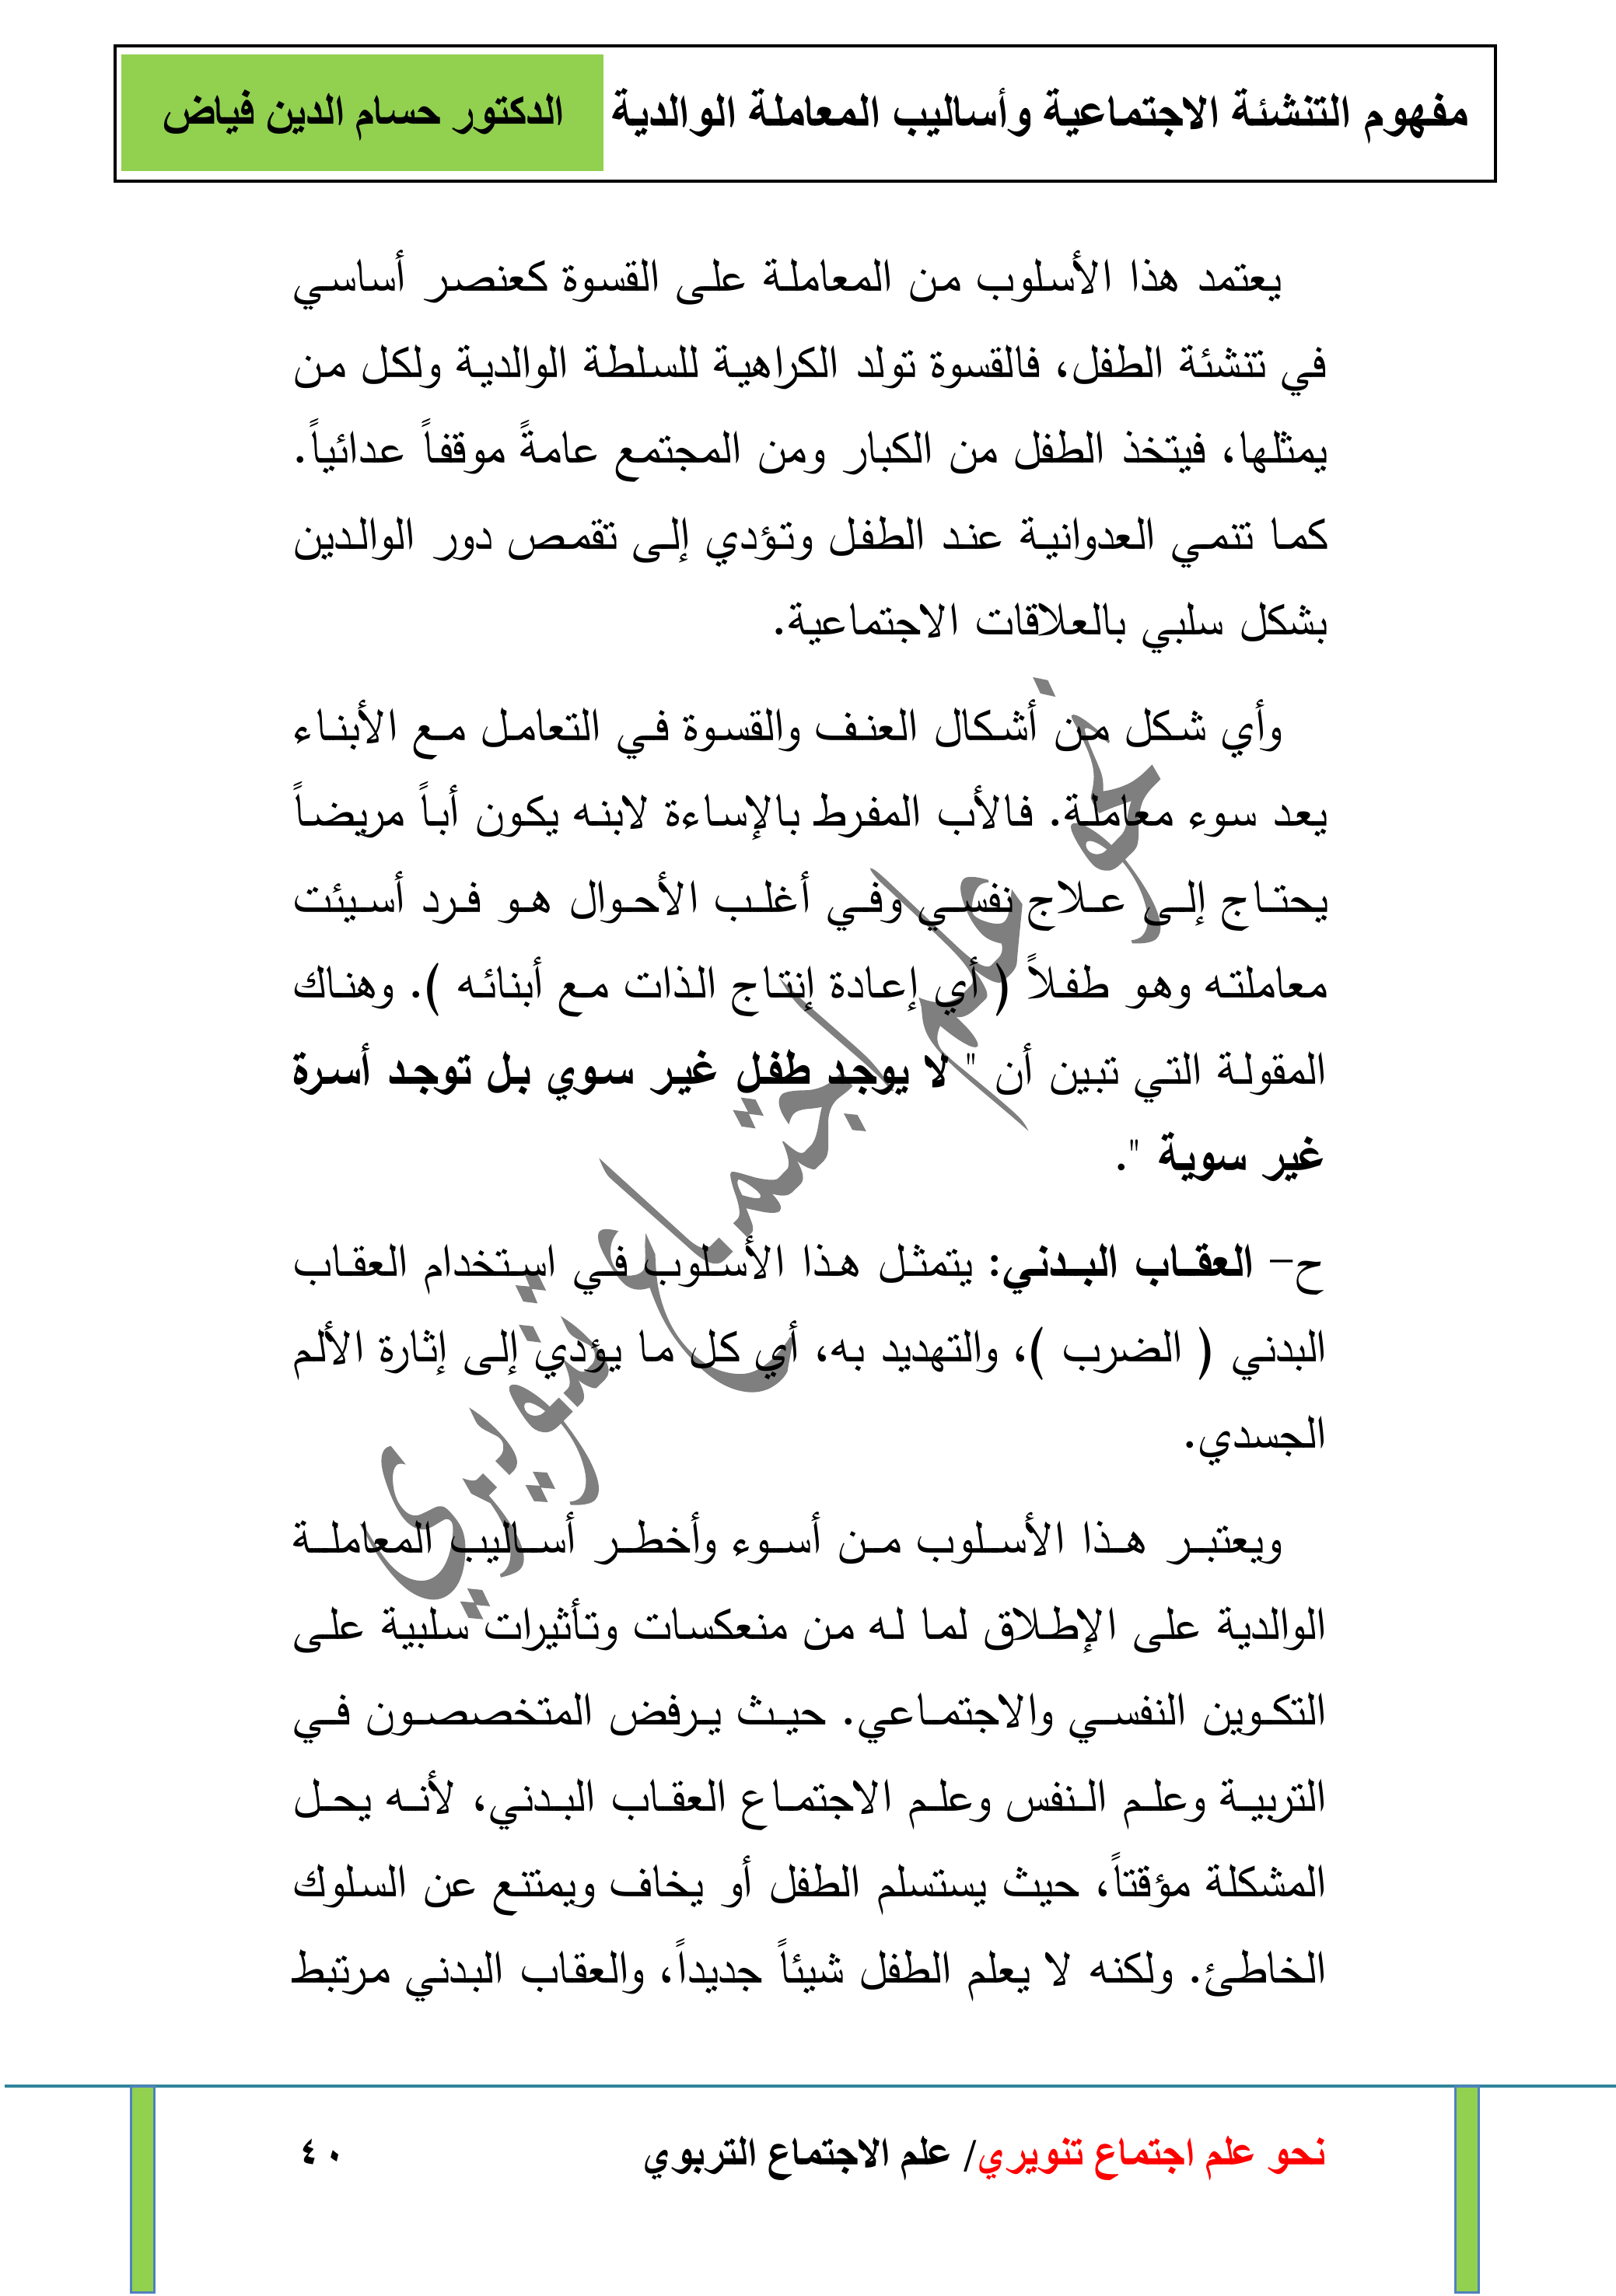 مفهوم التنشئة الاجتماعية وأساليب المعاملة الوالدية الدكتور حسام الدين فياض
يعتمد هذا الأسلوب من المعاملة على القسوة كعنصر أساسي
في تنشئة الطفل، فالقسوة تولد الكراهية للسلطة الوالدية ولكل من
يمثلها، فيتخذ الطفل من الكبار ومن المجتمع عامةً موقفاً عدائياً.
كما تنمي العدوانية عند الطفل وتؤدي إلى تقمص دور الوالدين
بشكل سلبي بالعلاقات الاجتماعية.
وأي شكل من أشكال العنف والقسوة في التعامل مع الأبناء
يعد سوء معاملة. فالأب المفرط بالإساءة لابنه يكون أباً مريضاً
يحتاج إلى علاج نفسي وفي أغلب الأحوال هو فرد أسيئت
معاملته وهو طفلاً ( أي إعادة إنتاج الذات مع أبنائه ). وهناك
المقولة التي تبين أن " لا يوجد طفل غير سوي بل توجد أسرة
غير سوية ".
ح- العقاب البدني: يتمثل هذا الأسلوب في استخدام العقاب
البدني ( الضرب )، والتهديد به، أي كل ما يؤدي إلى إثارة الألم
الجسدي.
ويعتبر هذا الأسلوب من أسوء وأخطر أساليب المعاملة
الوالدية على الإطلاق لما له من منعكسات وتأثيرات سلبية على
التكوين النفسي والاجتماعي. حيث يرفض المتخصصون في
التربية وعلم النفس وعلم الاجتماع العقاب البدني، لأنه يحل
المشكلة مؤقتاً، حيث يستسلم الطفل أو يخاف ويمتنع عن السلوك
الخاطئ. ولكنه لا يعلم الطفل شيئاً جديداً، والعقاب البدني مرتبط
نحو علم اجتماع تنويري
نحو علم اجتماع تنويري/ علم الاجتماع التربوي ٤٠